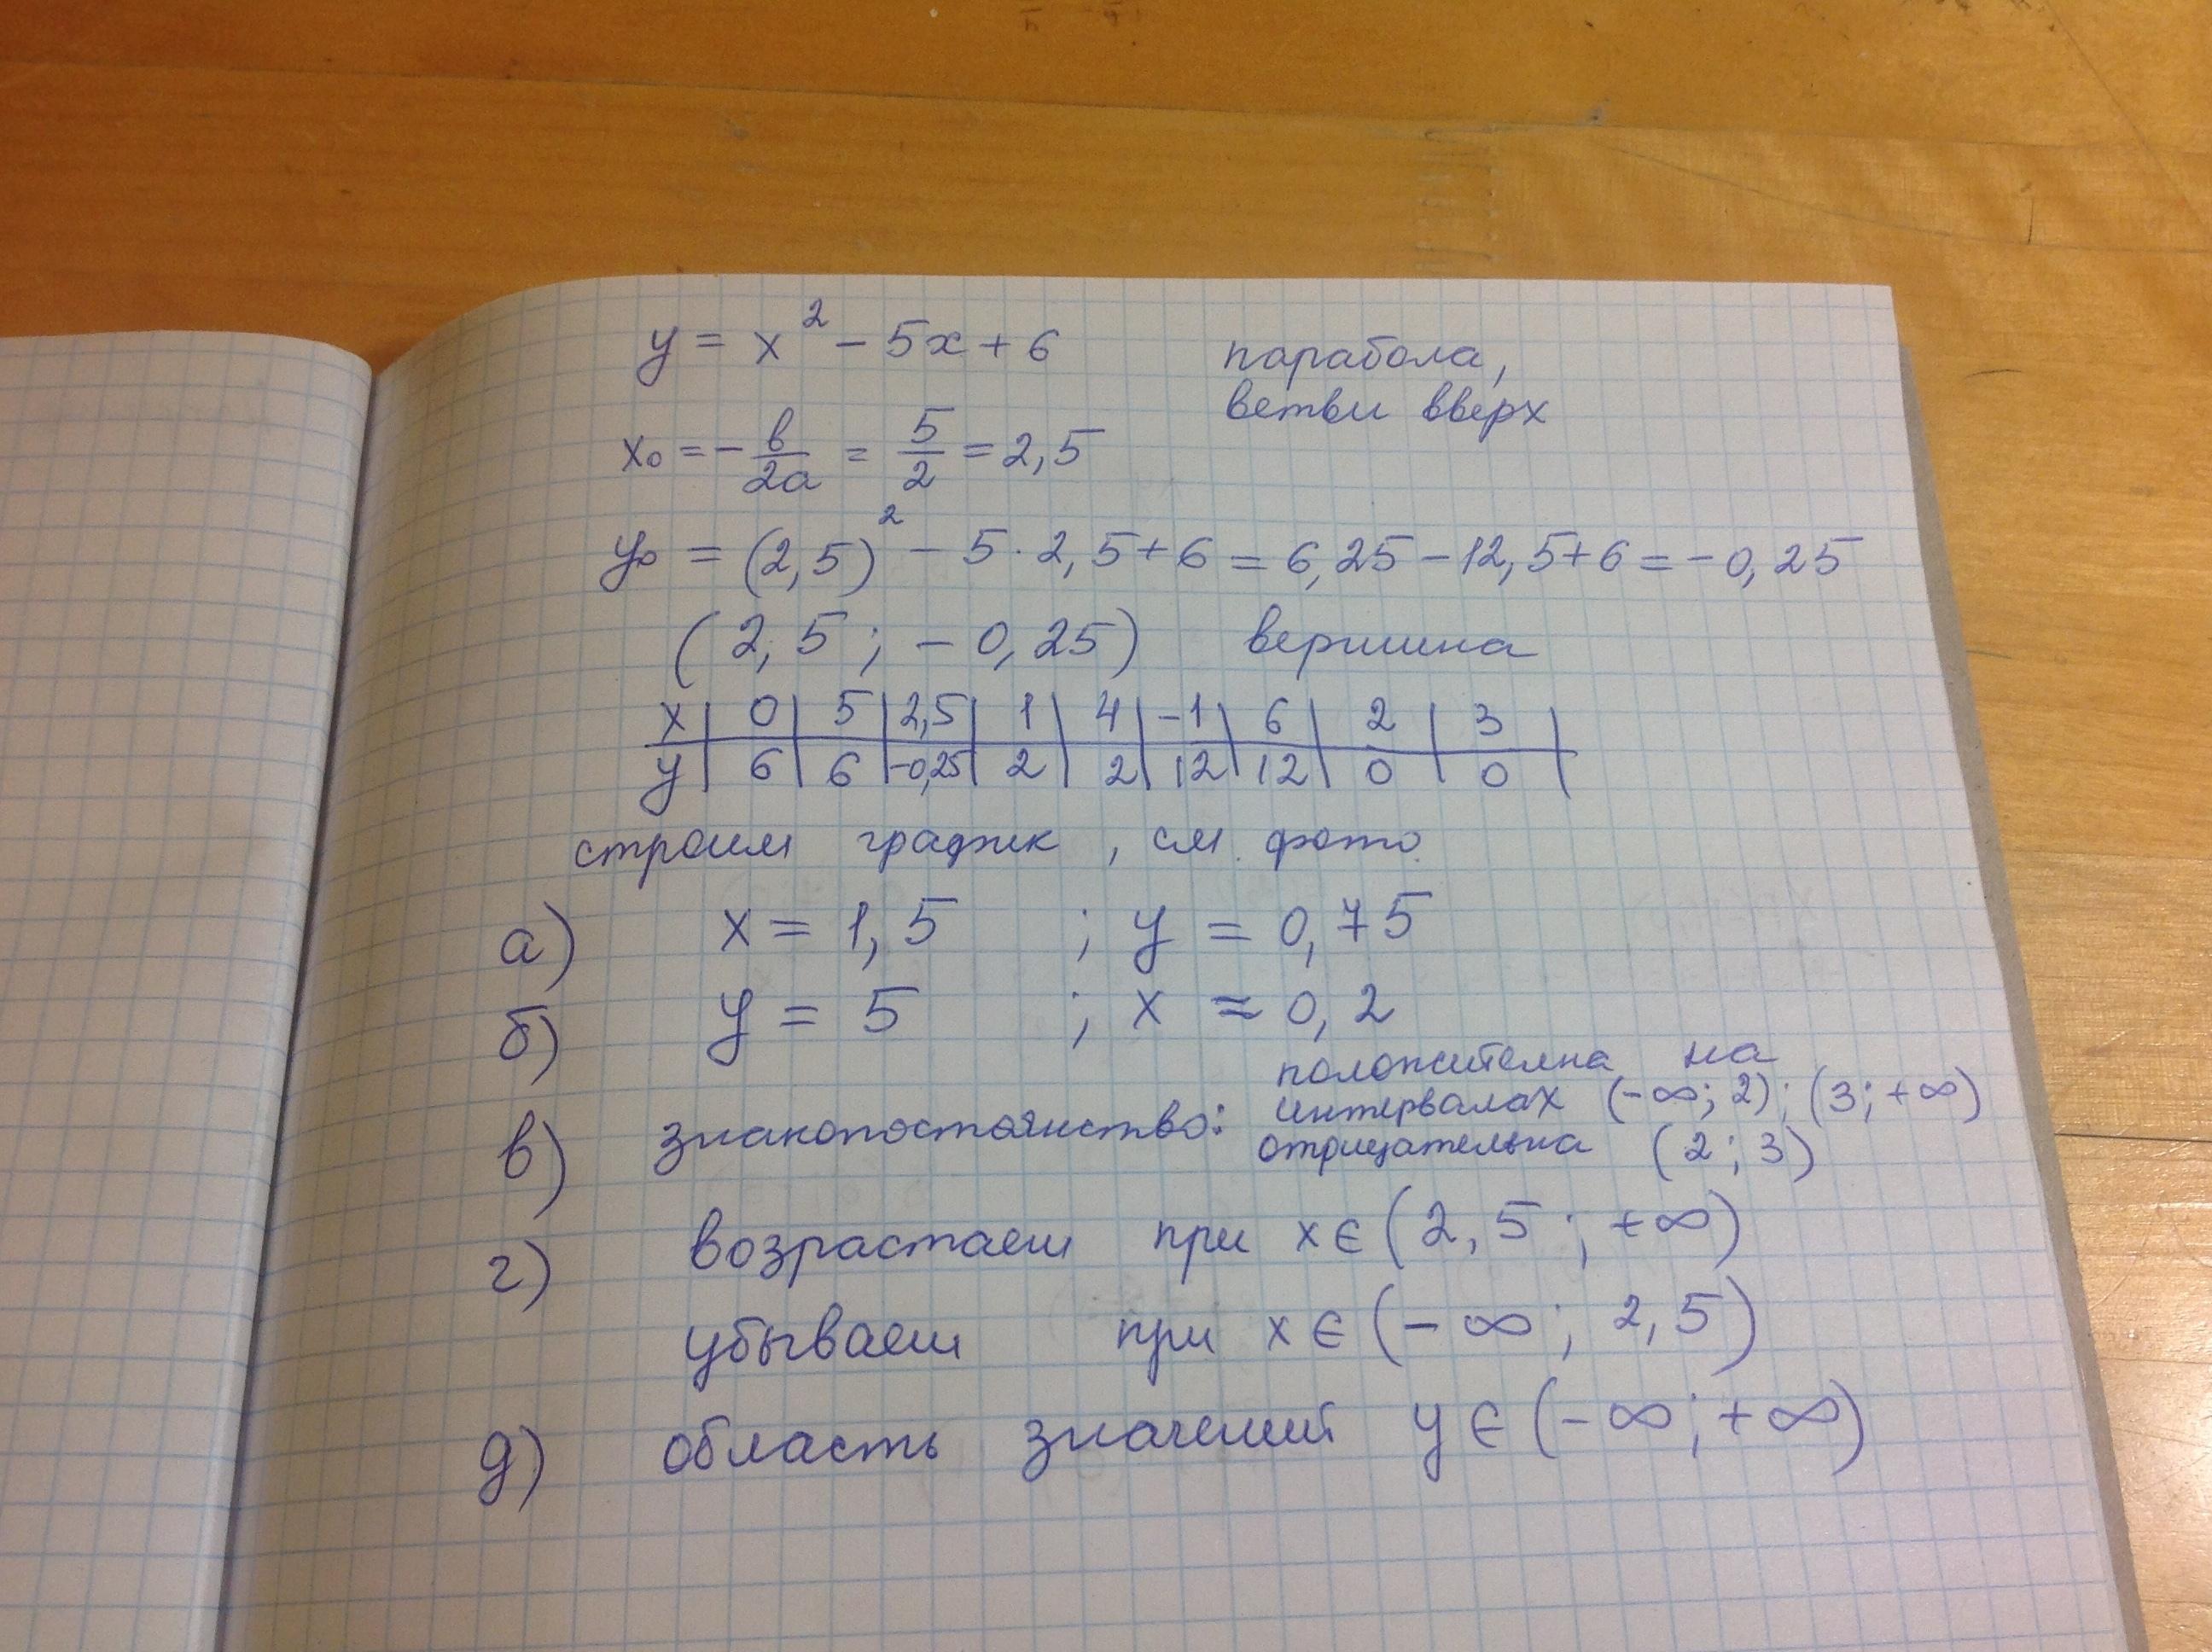 y = x² - 5x + 6
парабола,
ветви вверх
x₀ = -b/2a = 5/2 = 2,5
y₀ = (2,5)² - 5·2,5 + 6 = 6,25 - 12,5 + 6 = -0,25
(2,5 ; -0,25) вершина
x | 0 | 5 | 2,5 | 1 | 4 | -1 | 6 | 2 | 3 |
y | 6 | 6 | -0,25 | 2 | 2 | 12 | 12 | 0 | 0 |
строим график, см. фото.
а) x = 1,5 ; y = 0,75
б) y = 5 ; x ≈ 0,2
в) знакопостоянство: положителна на
интервалах (-∞; 2); (3; +∞)
отрицательна (2; 3)
г) возрастает при x ∈ (2,5 ; +∞)
убывает при x ∈ (-∞; 2,5)
д) область значений y ∈ (-∞; +∞)